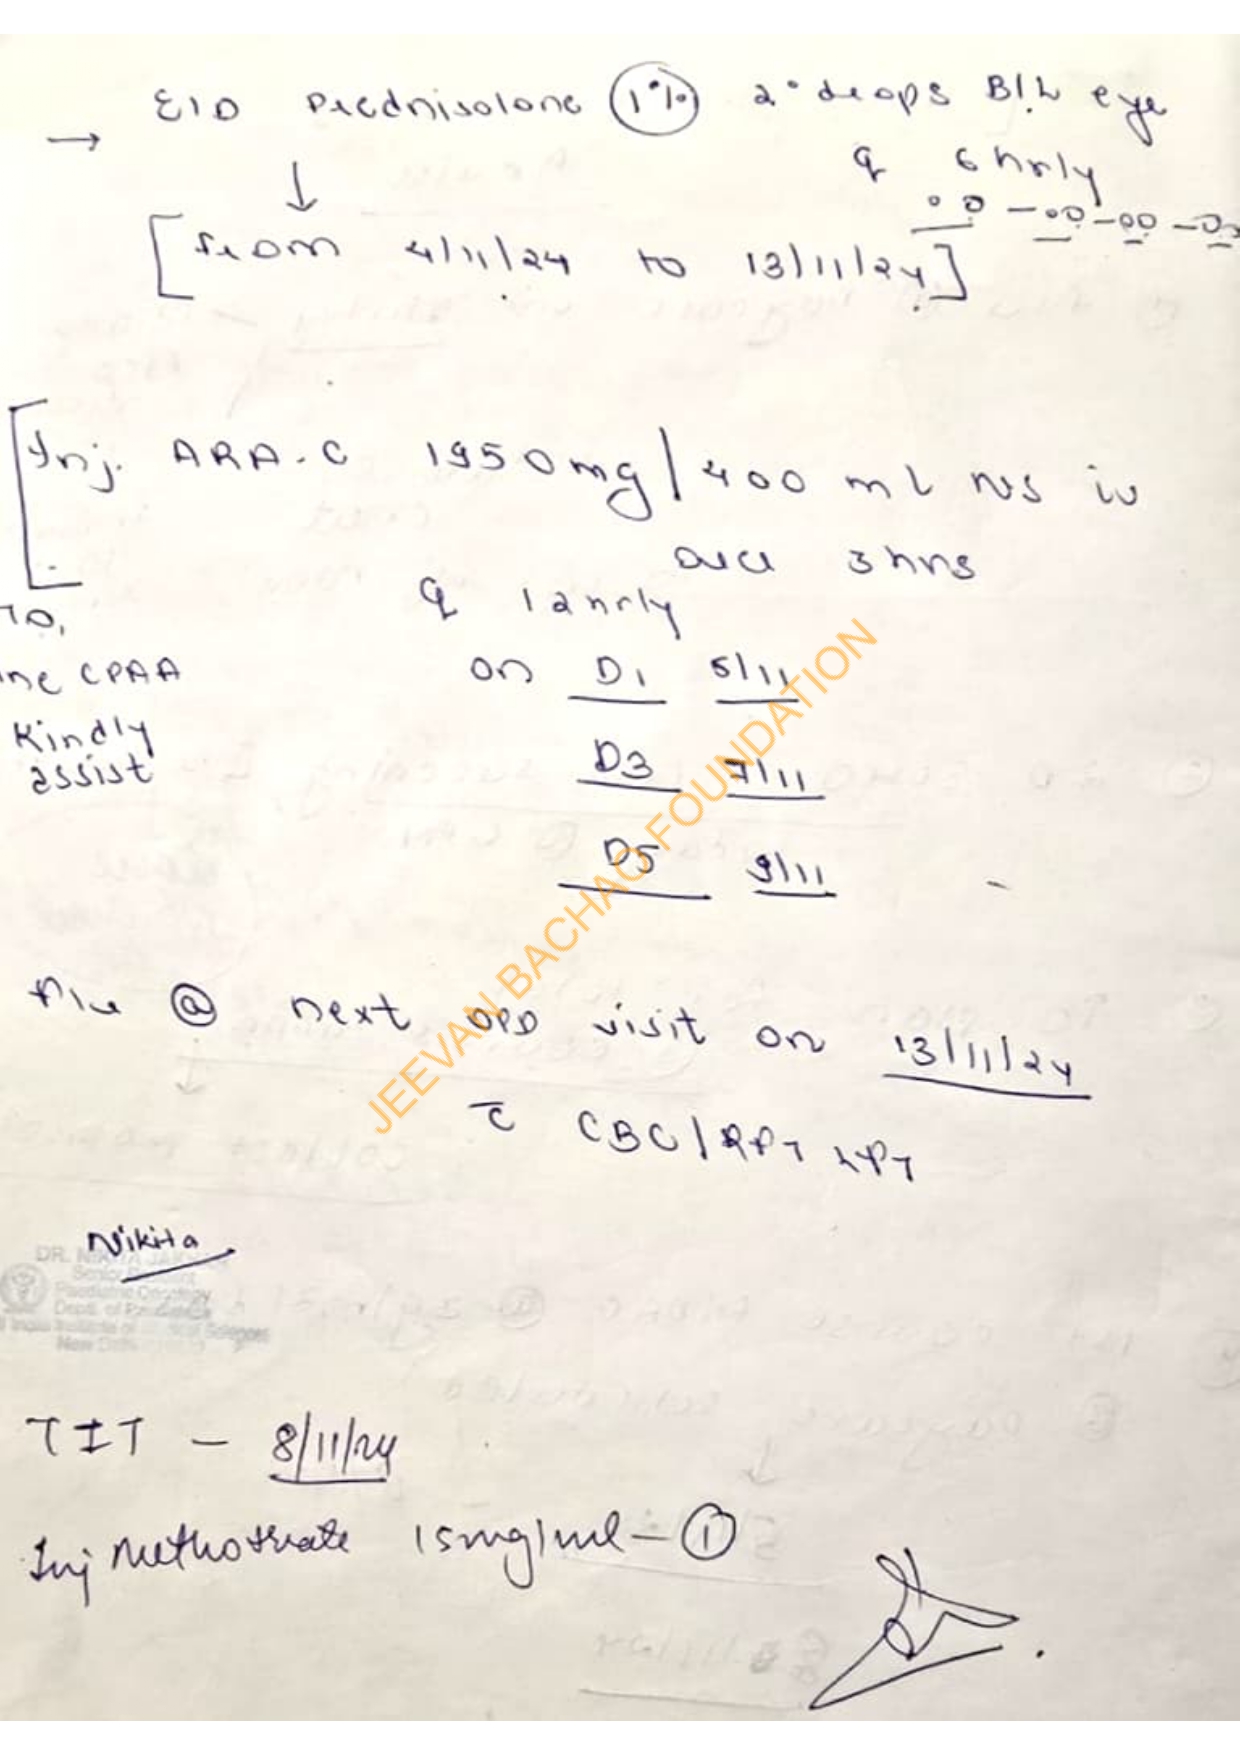 → E/D Prednisolone 1% 2 drops B/L eye
q 6 hrly
↓
[from 4/11/24 to 13/11/24]
Inj. ARA-C 1950mg/400 ml NS iv
over 3 hrs
q 12 hrly
TO,
CPAA
Kindly
assist
on D1 5/11
D3 7/11
D5 9/11
@ next OPD visit on 13/11/24
c̄ CBC/RFT LFT
Nikita
DR. NIKITA
Senior Resident
Paediatric Oncology
Deptt. of Paediatrics
India Institute of Medical Sciences
New Delhi
TIT - 8/11/24
Inj Methotrexate 15mg/ml - 1
JEEVAN BACHAO FOUNDATION